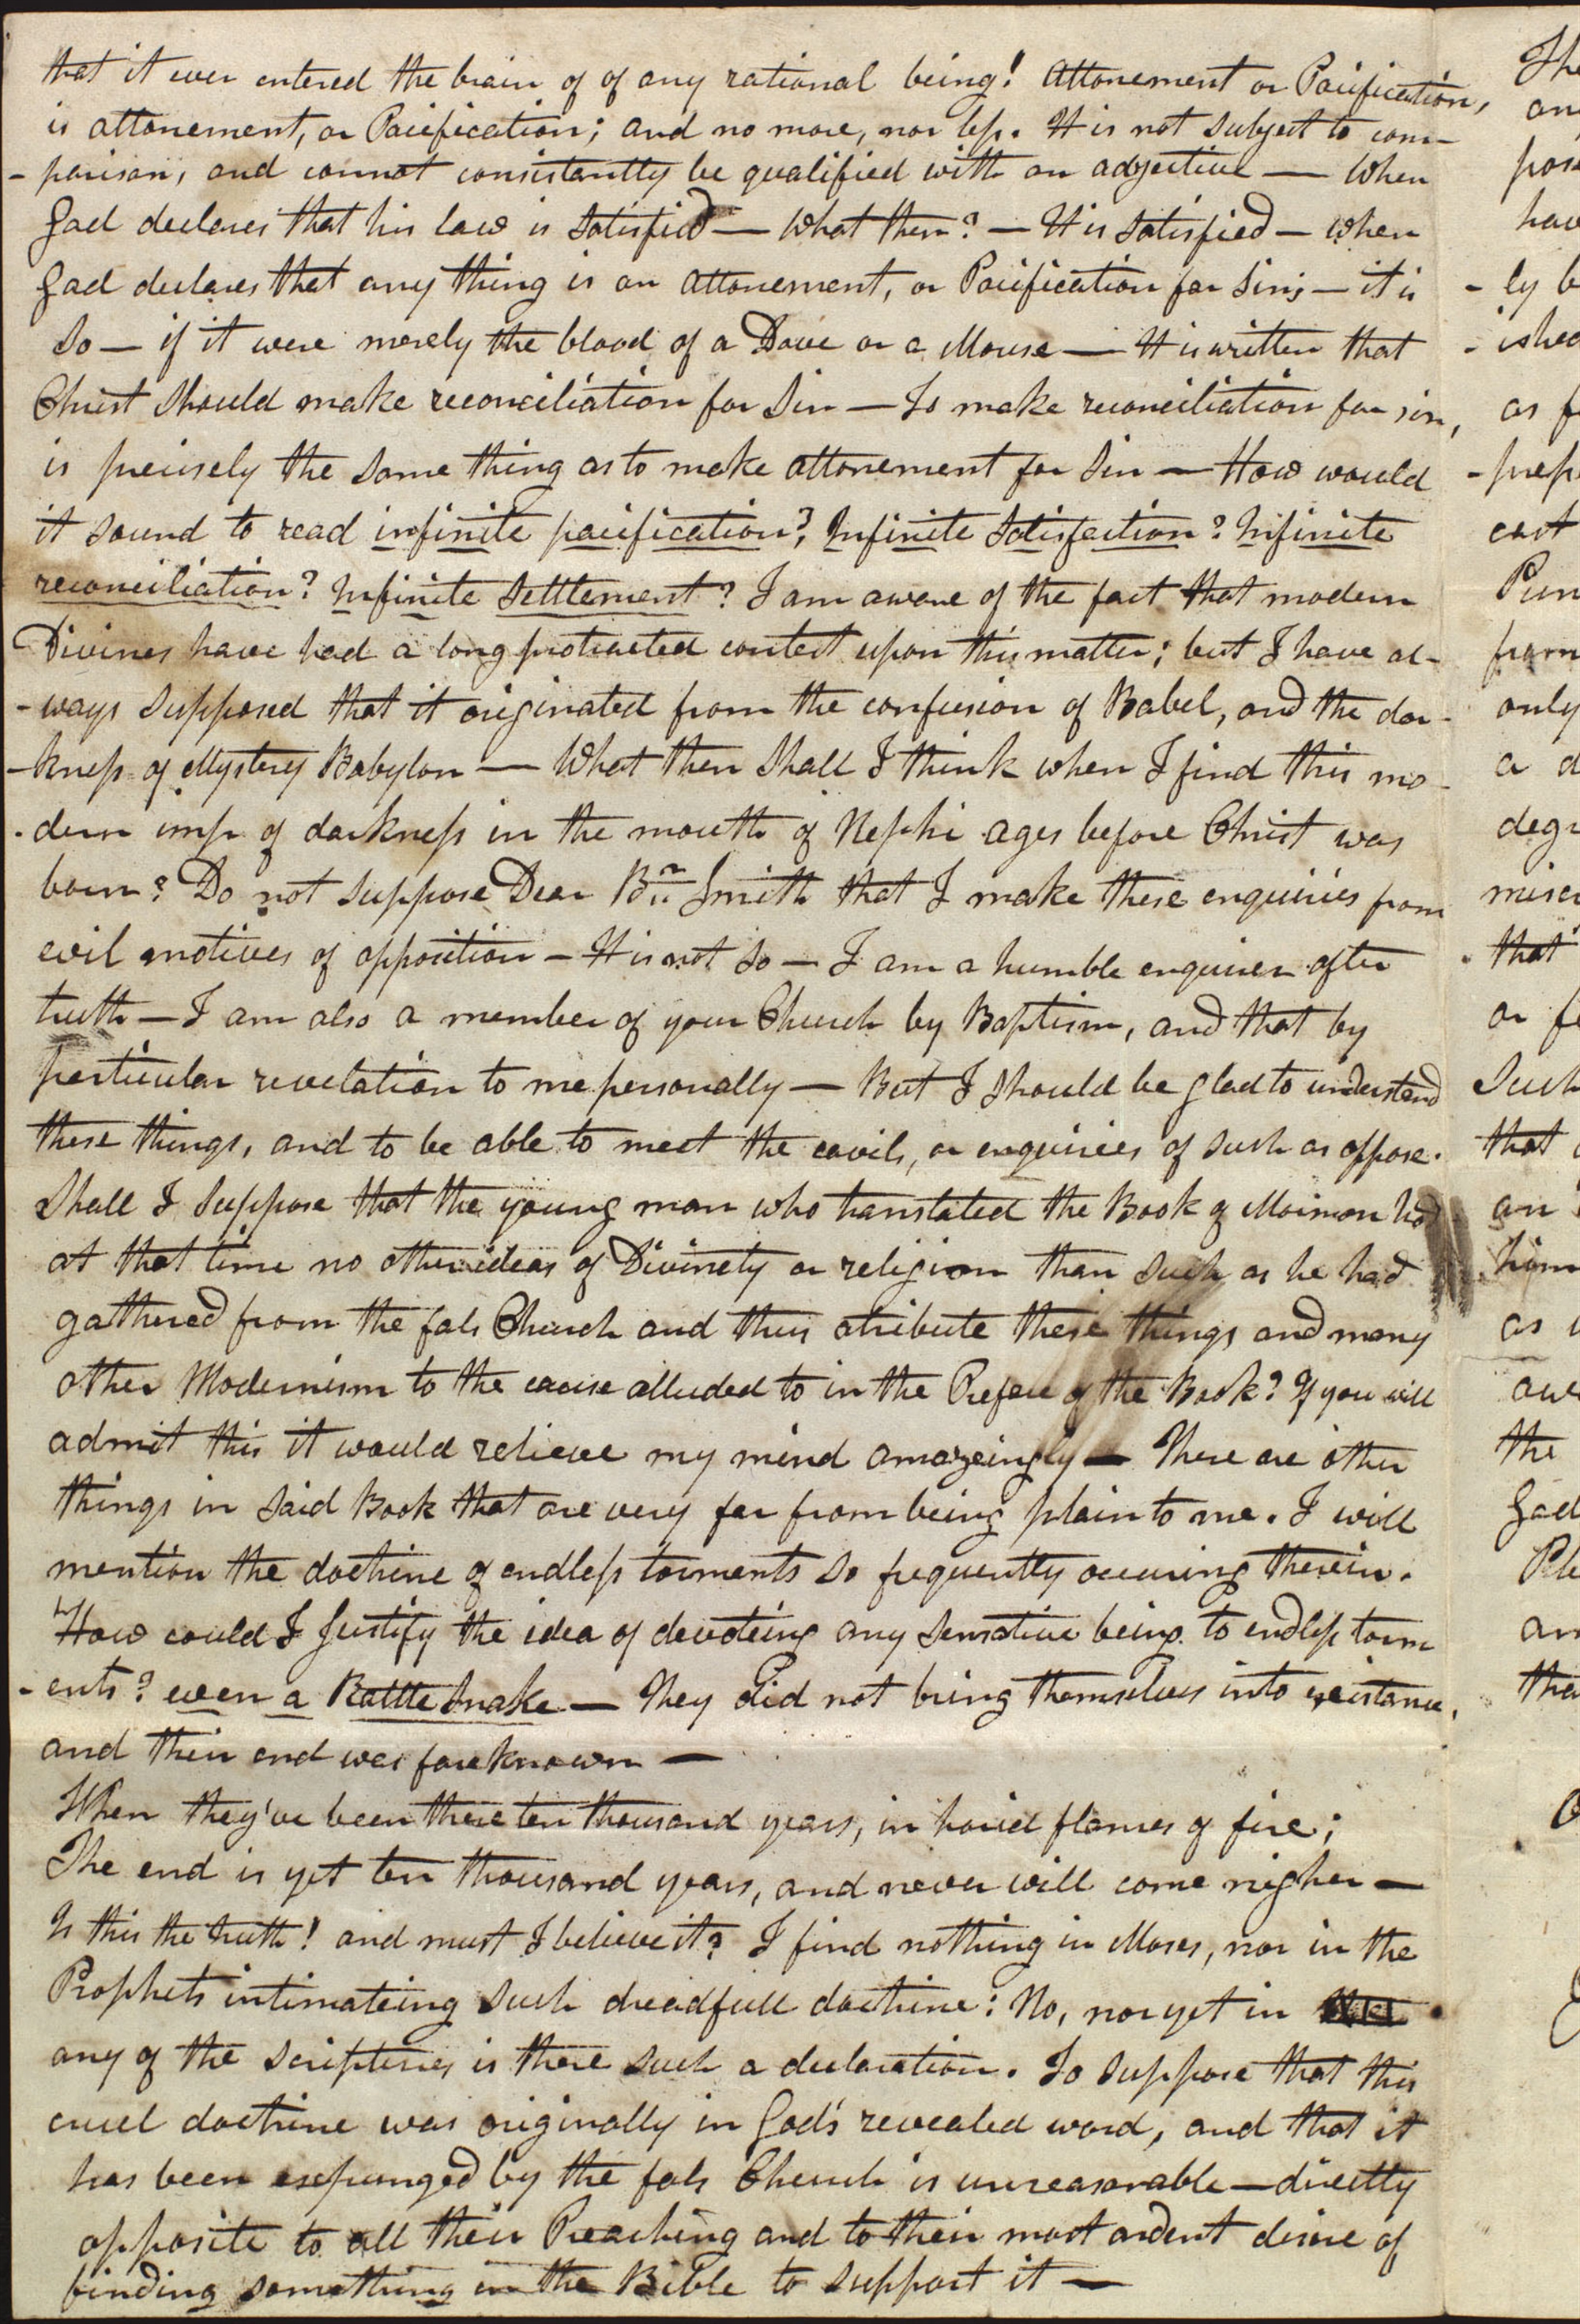 that it ever entered the brain of of any rational being! Attonement or Pacification,
is attonement, or Pacification; and no more, nor less. It is not subject to com-
-parison, and cannot consistantly be qualified with an adjective — When
God declares that his law is satisfied — What then? — It is satisfied — when
God declares that any thing is an attonement, or Pacification for sins — it is
so — if it were merely the blood of a Dove or a Mouse — It is written that
Christ should make reconciliation for Sin — To make reconciliation for sin,
is precisely the same thing as to make attonement for sin — How would
it sound to read infinite pacification? Infinite Satisfaction? Infinite
reconciliation? Infinite Settlement? I am aware of the fact that modern
Divines have had a long protracted contest upon this matter; but I have al-
-ways supposed that it originated from the confusion of Babel, and the dar-
-kness of Mystery Babylon — What then shall I think when I find this mo-
-dern imp of darkness in the mouth of Nephi ages before Christ was
born? Do not suppose Dear Br. Smith that I make these enquiries from
evil motives of opposition — It is not so — I am a humble enquirer after
truth — I am also a member of your Church by Baptism, and that by
particular revelation to me personally — But I should be glad to understand
these things, and to be able to meet the cavils, or enquiries of such as oppose.
Shall I suppose that the young man who translated the Book of Mormon had
at that time no other ideas of Divinety or religion than such as he had
gathered from the fals Church and thus atribute these things and many
other Modernism to the cause alluded to in the Preface of the Book? If you will
admit this it would relieve my mind amazeingly — There are other
things in said Book that are very far from being plain to me. I will
mention the doctrine of endless torments so frequently occuring therein.
How could I Justify the idea of devoteing any sensative being to endless torm
-ents? even a Rattle Snake — They did not bring themselves into existance,
and their end was foreknown —
When they've been there ten thousand years, in horid flames of fire;
The end is yet ten thousand years, and never will come nigher —
Is this the truth! and must I believe it? I find nothing in Moses, nor in the
Prophets intimateing such dreadfull doctrine: No, nor yet in
any of the scriptures is there such a declaration. To suppose that this
cruel doctrine was originally in God's revealed word, and that it
has been expunged by the fals Church is unreasonable — directly
opposite to all their Preaching and to their most ardent desire of
finding something in the Bible to support it —
The
an
pos
hav
-ly b
-ished
as f
-prep
cast
Pun
from
only
a d
degr
miser
that
or f
Such
that
an
him
as
awe
the
God
Ple
an
tha